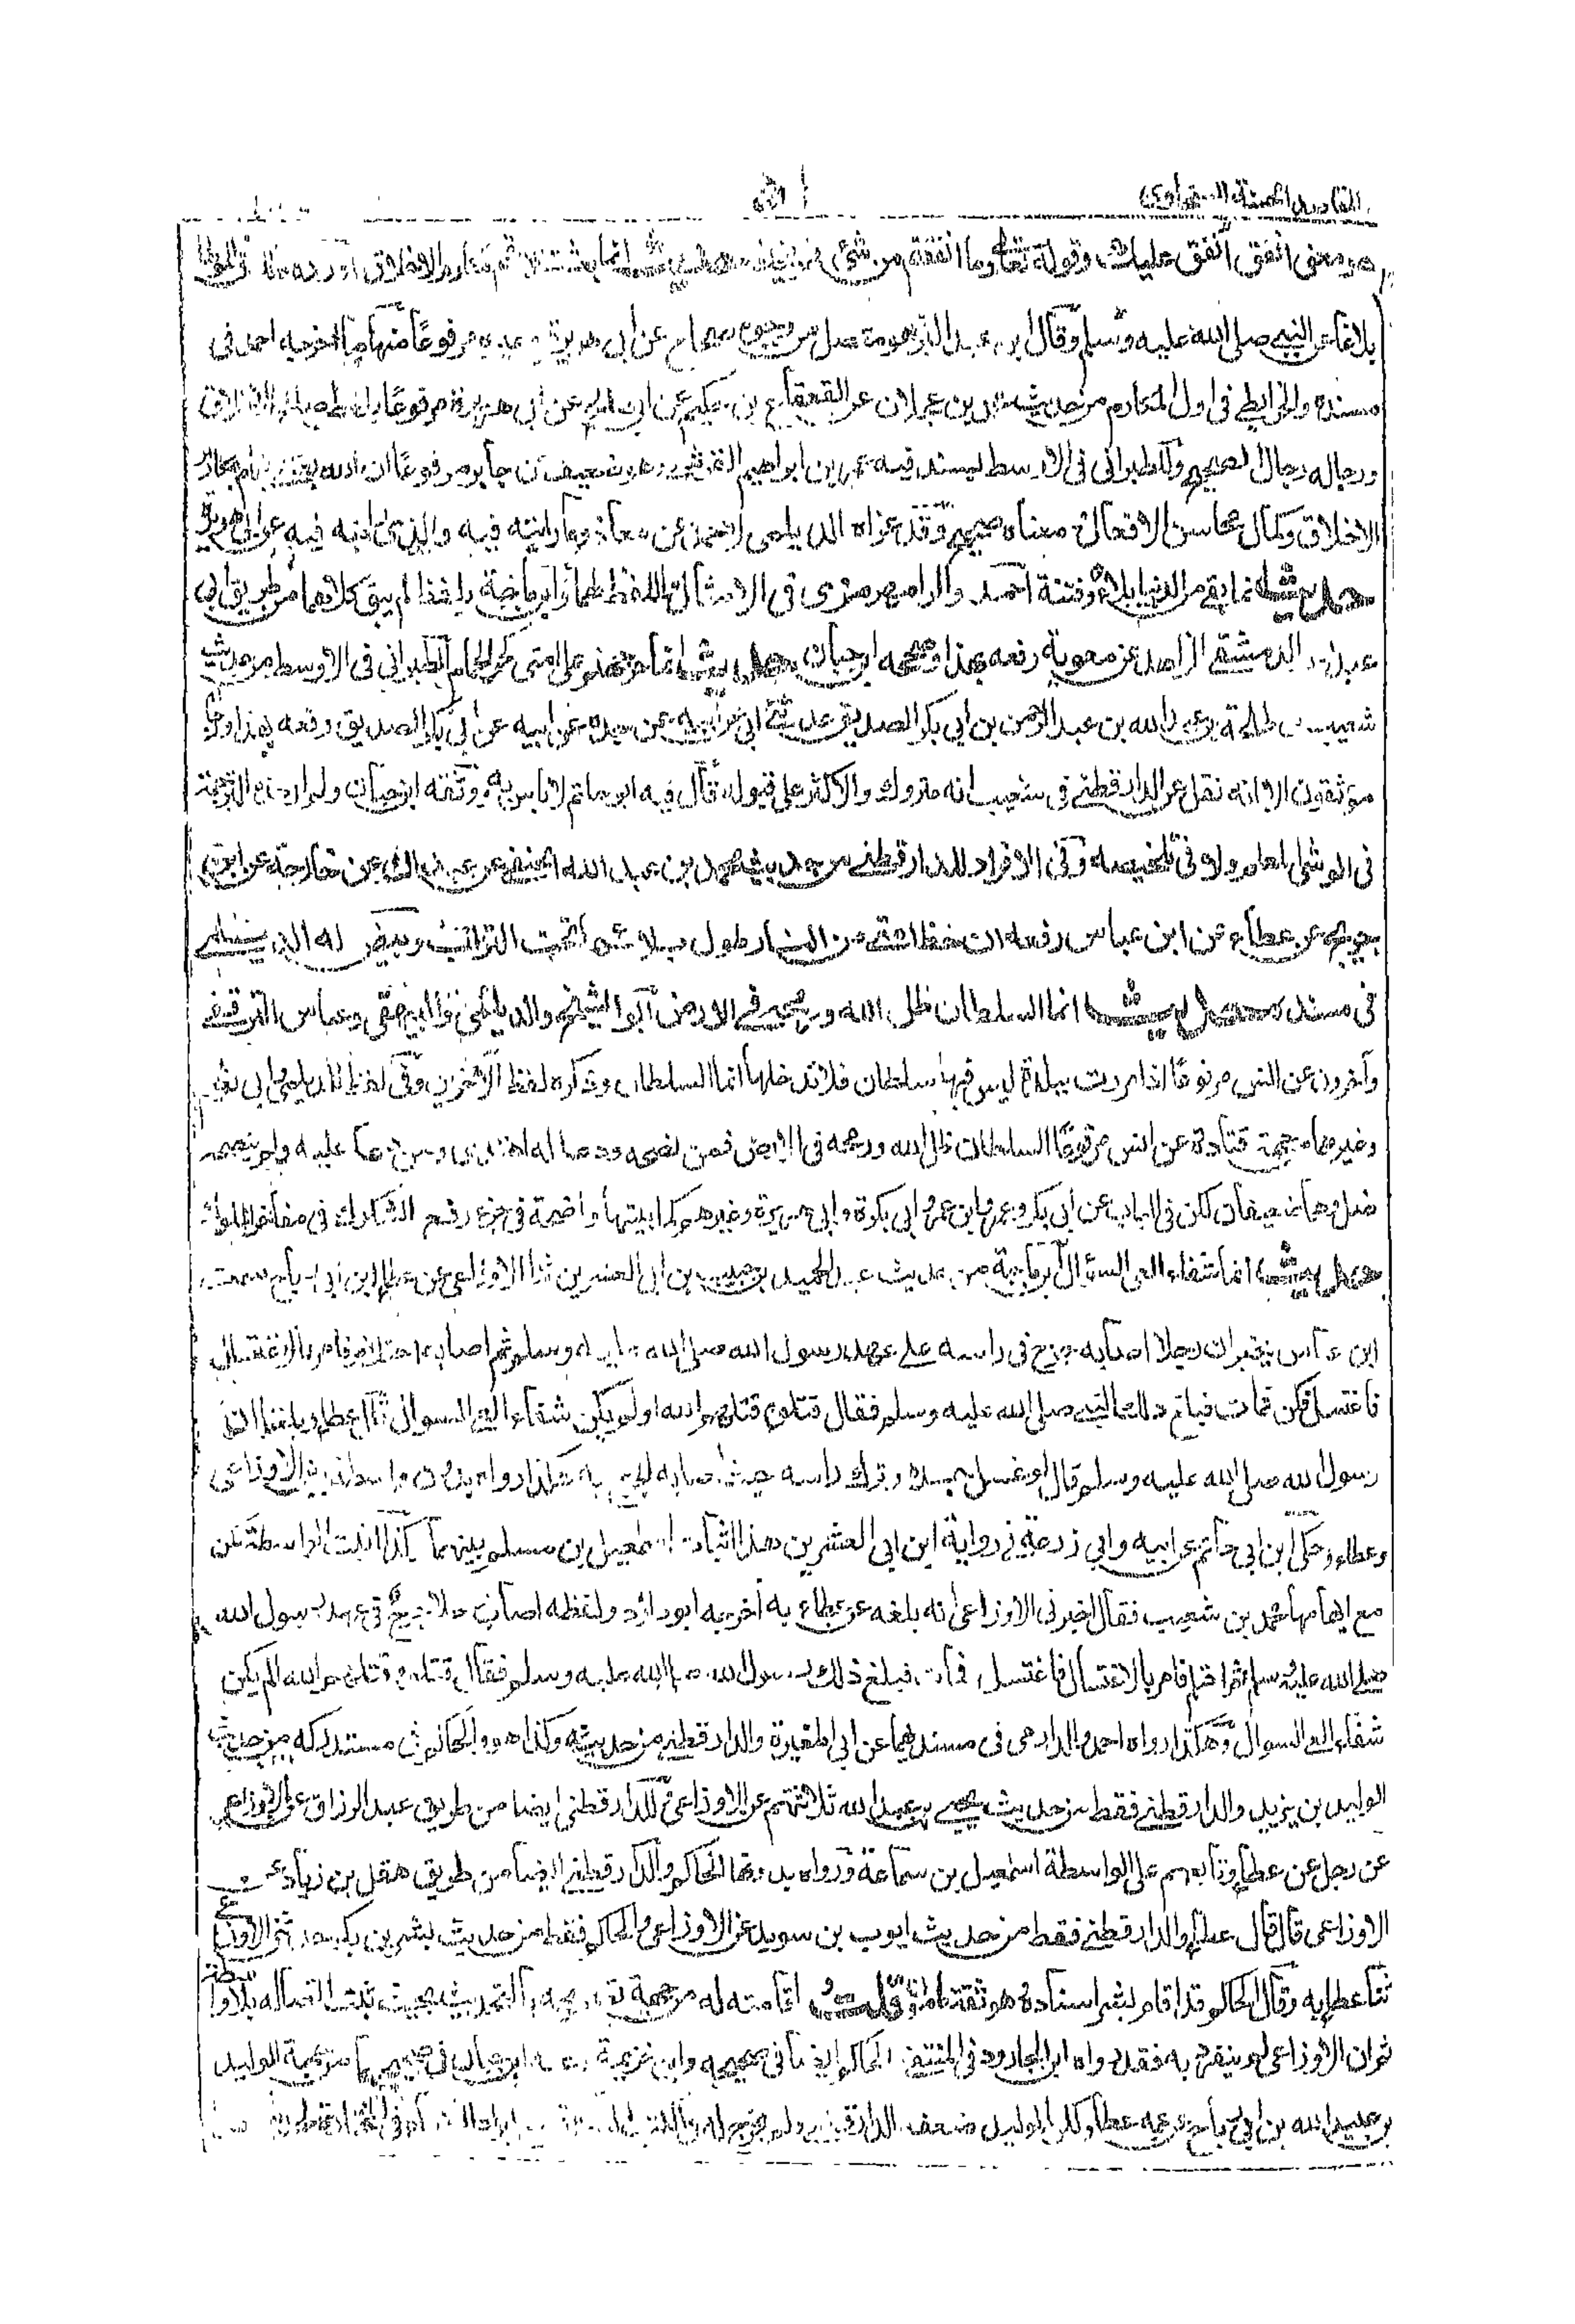 المقاصد الحسنة للسخاوى
معنى انفق انفق عليك وقوله تعا وما انفقتم من شئ حديث انما بعثت لاتمم مكارم الاخلاق
بلاغا عن النبي صلى الله عليه وسلم وقال ابن عبد البر هو متصل من وجوه صحاح عن ابى هريرة مرفوعا منها ما اخرجه احمد فى
مسنده والخرايطى فى اول المكارم من حديث بن عجلان عن القعقاع بن حكيم عن ابى صالح عن ابى هريرة مرفوعا بلفظ صالح الاخلاق
ورجاله رجال الصحيح وللطبرانى فى الاوسط بسند فيه عمر بن ابراهيم القرشى وهو ضعيف عن جابر مرفوعا ان الله
الاخلاق وكمال محاسن الافعال ومعناه صحيح وقد عزاه الديلمى لاحمد عن معاذ وما رايته فيه والذى رايته فيه عن ابى هريرة
حديث انما بقى من الدنيا بلاء وفتنة احمد والرامهرمزى فى الامثال واللفظ لهما وابن ماجة بلفظ لم يبق كلاهما من طريق ابى
عبد الدمشقى الزاهد عن معوية رفعه بهذا وصححه ابن حبان حديث انما حر جهنم على امتى كحر الحمام الطبرانى فى الاوسط من حديث
شعيب بن طلحة بن عبد الله بن عبد الرحمن بن ابى بكر الصديق حدثنى ابى عن ابيه عن جده عن ابيه عن ابى بكر الصديق رفعه بهذا
موثقون الا انه نقل عن الدارقطنى فى شعيب انه متروك والاكثر على قبوله قال فيه ابو حاتم لا باس به ووثقه ابن حبان ولم ار هذه الترجمة
فى الوشى المعلم ولا فى تلخيصه وفى الافراد للدارقطنى من حديث محمد بن عبد الله الحنفى عن عن خارجة عن ابن
جريج عن عطاء عن ابن عباس رفعه ان حظ امتى من النار طول بلائها تحت التراب له الديلمى
فى مسنده حديث انما السلطان ظل الله ورمحه فى الارض ابو الشيخ والديلمى والبيهقى وعباس الترقفى
وآخرون عن انس مرفوعا اذا مررت ببلدة ليس فيها سلطان فلا تدخلها انما السلطان وذكره لفظ الآخرين وفى لفظ للديلمى وابى نعيم
وغيرهما من جهة قتادة عن انس مرفوعا السلطان ظل الله ورمحه فى الارض فمن نصحه ودعا له اهتدى ومن دعا عليه ولم ينصحه
ضل وهما ضعيفان لكن فى الباب عن ابى بكر وعمر وابن عمر وابى بكرة وابى هريرة وغيرهم كما بينتها واضحة فى جزء رفع الشكوك فى مفاخر الملوك
حديث انما شفاء العى السؤال ابن ماجة من حديث عبد الحميد بن حبيب بن ابى العشرين ثنا الاوزاعى عن عطاء ابن ابى رباح سمعت
ابن عباس يخبر ان رجلا اصابه جرح فى راسه على عهد رسول الله صلى الله عليه وسلم ثم اصابه احتلام فامر بالاغتسال
فاغتسل فكز فمات فبلغ ذلك النبى صلى الله عليه وسلم فقال قتلوه قتلهم الله اولم يكن شفاء العى السوال قال عطاء وبلغنا ان
رسول الله صلى الله عليه وسلم قال لو غسل جسده وترك راسه حيث اصابه الجرح هكذا رواه بدون واسطة بين الاوزاعى
وعطاء وحكى ابن ابى حاتم عن ابيه وابى زرعة فى رواية ابن ابى العشرين هذا اثبات اسمعيل بن مسلم بينهما كذا اثبت الواسطة لكن
مع ابهامها محمد بن شعيب فقال اخبرنى الاوزاعى انه بلغه عن عطاء به اخرجه ابو داؤد ولفظه اصاب رجلا جرح فى عهد رسول الله
صلى الله عليه وسلم ثم احتلم فامر بالاغتسال فاغتسل فمات فبلغ ذلك رسول الله صلى الله عليه وسلم فقال قتلوه قتلهم الله الم يكن
شفاء العى السوال وهكذا رواه احمد والدارمى فى مسنديهما عن ابى المغيرة والدارقطنى من حديثه وكذا هو والحاكم فى مستدركه من حديث
الوليد بن يزيد والدارقطنى فقط من حديث يحيى بن عبد الله ثلاثتهم عن الاوزاعى وللدارقطنى ايضا من طريق عبد الرزاق عن الاوزاعى
عن رجل عن عطاء وتابعهم على الواسطة اسمعيل بن سماعة ورواه بدونها الحاكم والدارقطنى ايضا من طريق هقل بن زياد عن
الاوزاعى قال قال عطاء والدارقطنى فقط من حديث ايوب بن سويد عن الاوزاعى والحاكم فقط من حديث بشر بن بكر حدثنى الاوزاعى
ثنا عطاء به وقال الحاكم قد اقام بشر اسناده وهو ثقة مامون قلت اقامته له من جهة تصريحه بالتحديث بحيث ثبت اتصاله بلا واسطة
ثم ان الاوزاعى لم ينفرد به فقد رواه ابن الجارود فى المنتقى الحاكم ايضا فى صحيحه وابن خزيمة وابن حبان فى صحيحيهما من جهة الوليد
بن عبيد الله بن ابى رباح عن عمه عطاء وكذا الوليد ضعفه الدارقطنى